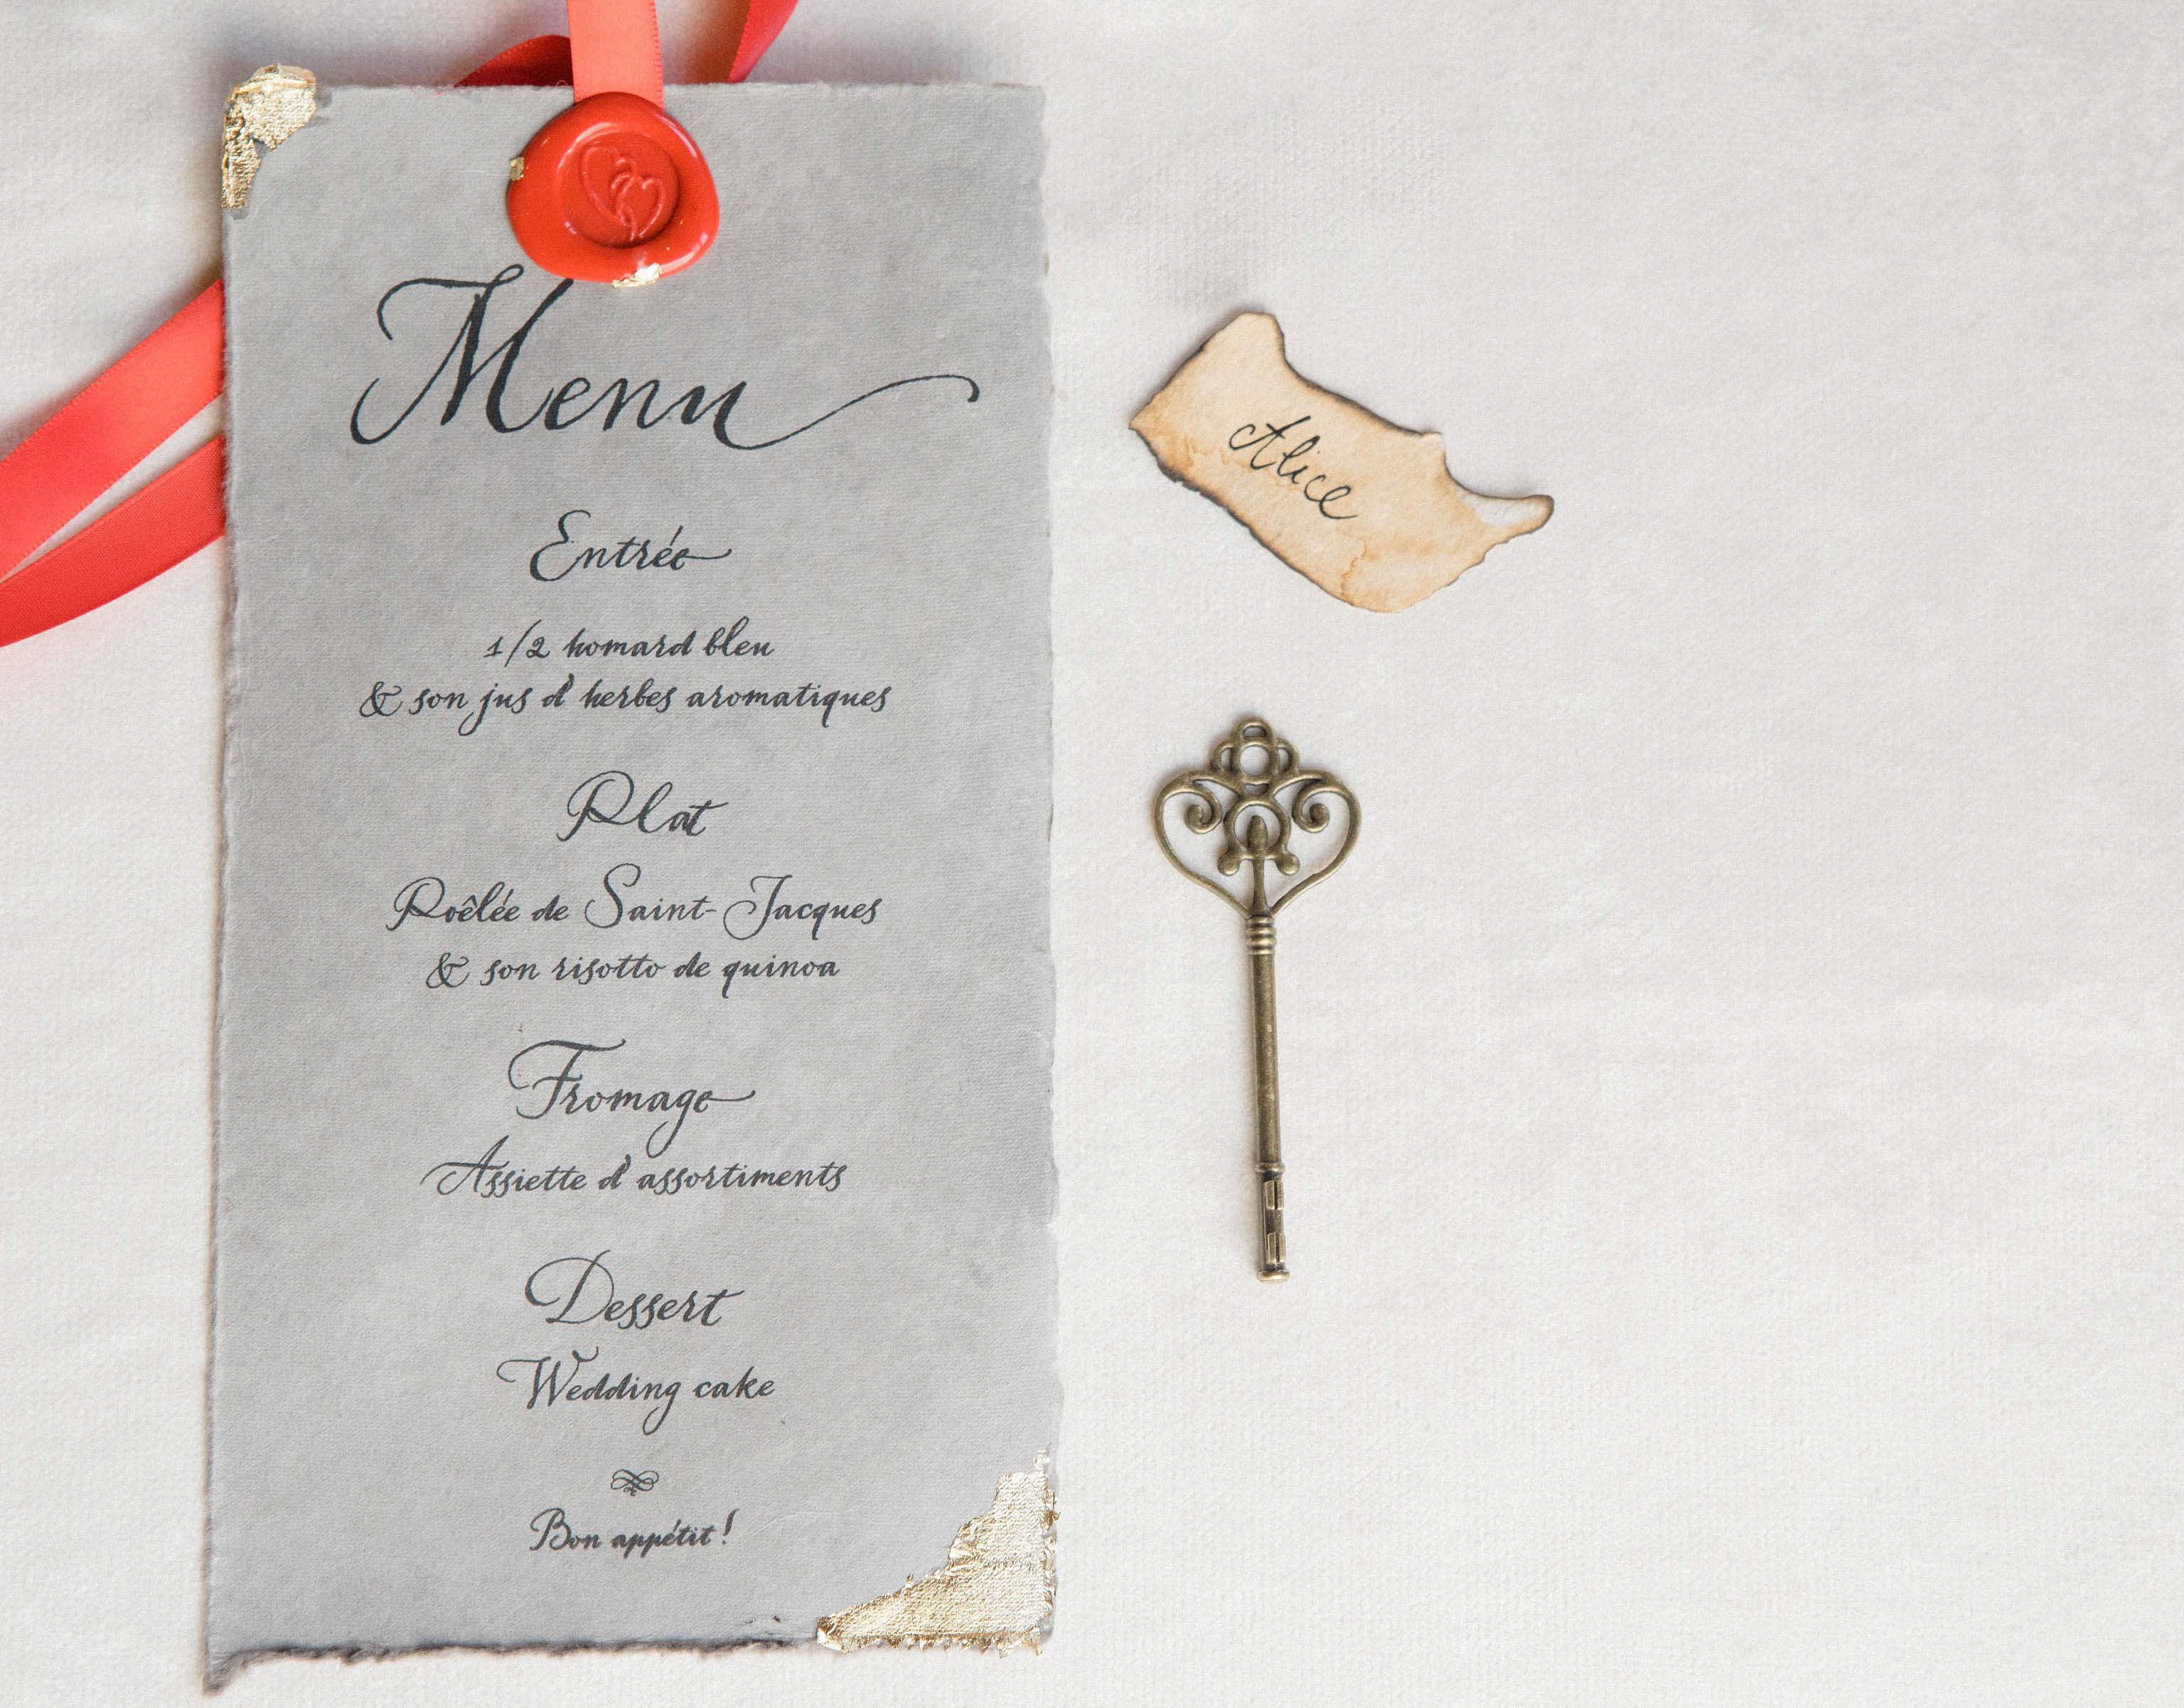 Menu
Entrée
1/2 homard bleu
& son jus d'herbes aromatiques
Plat
Poêlée de Saint-Jacques
& son risotto de quinoa
Fromage
Assiette d'assortiments
Dessert
Wedding cake
Bon appétit!
Alice